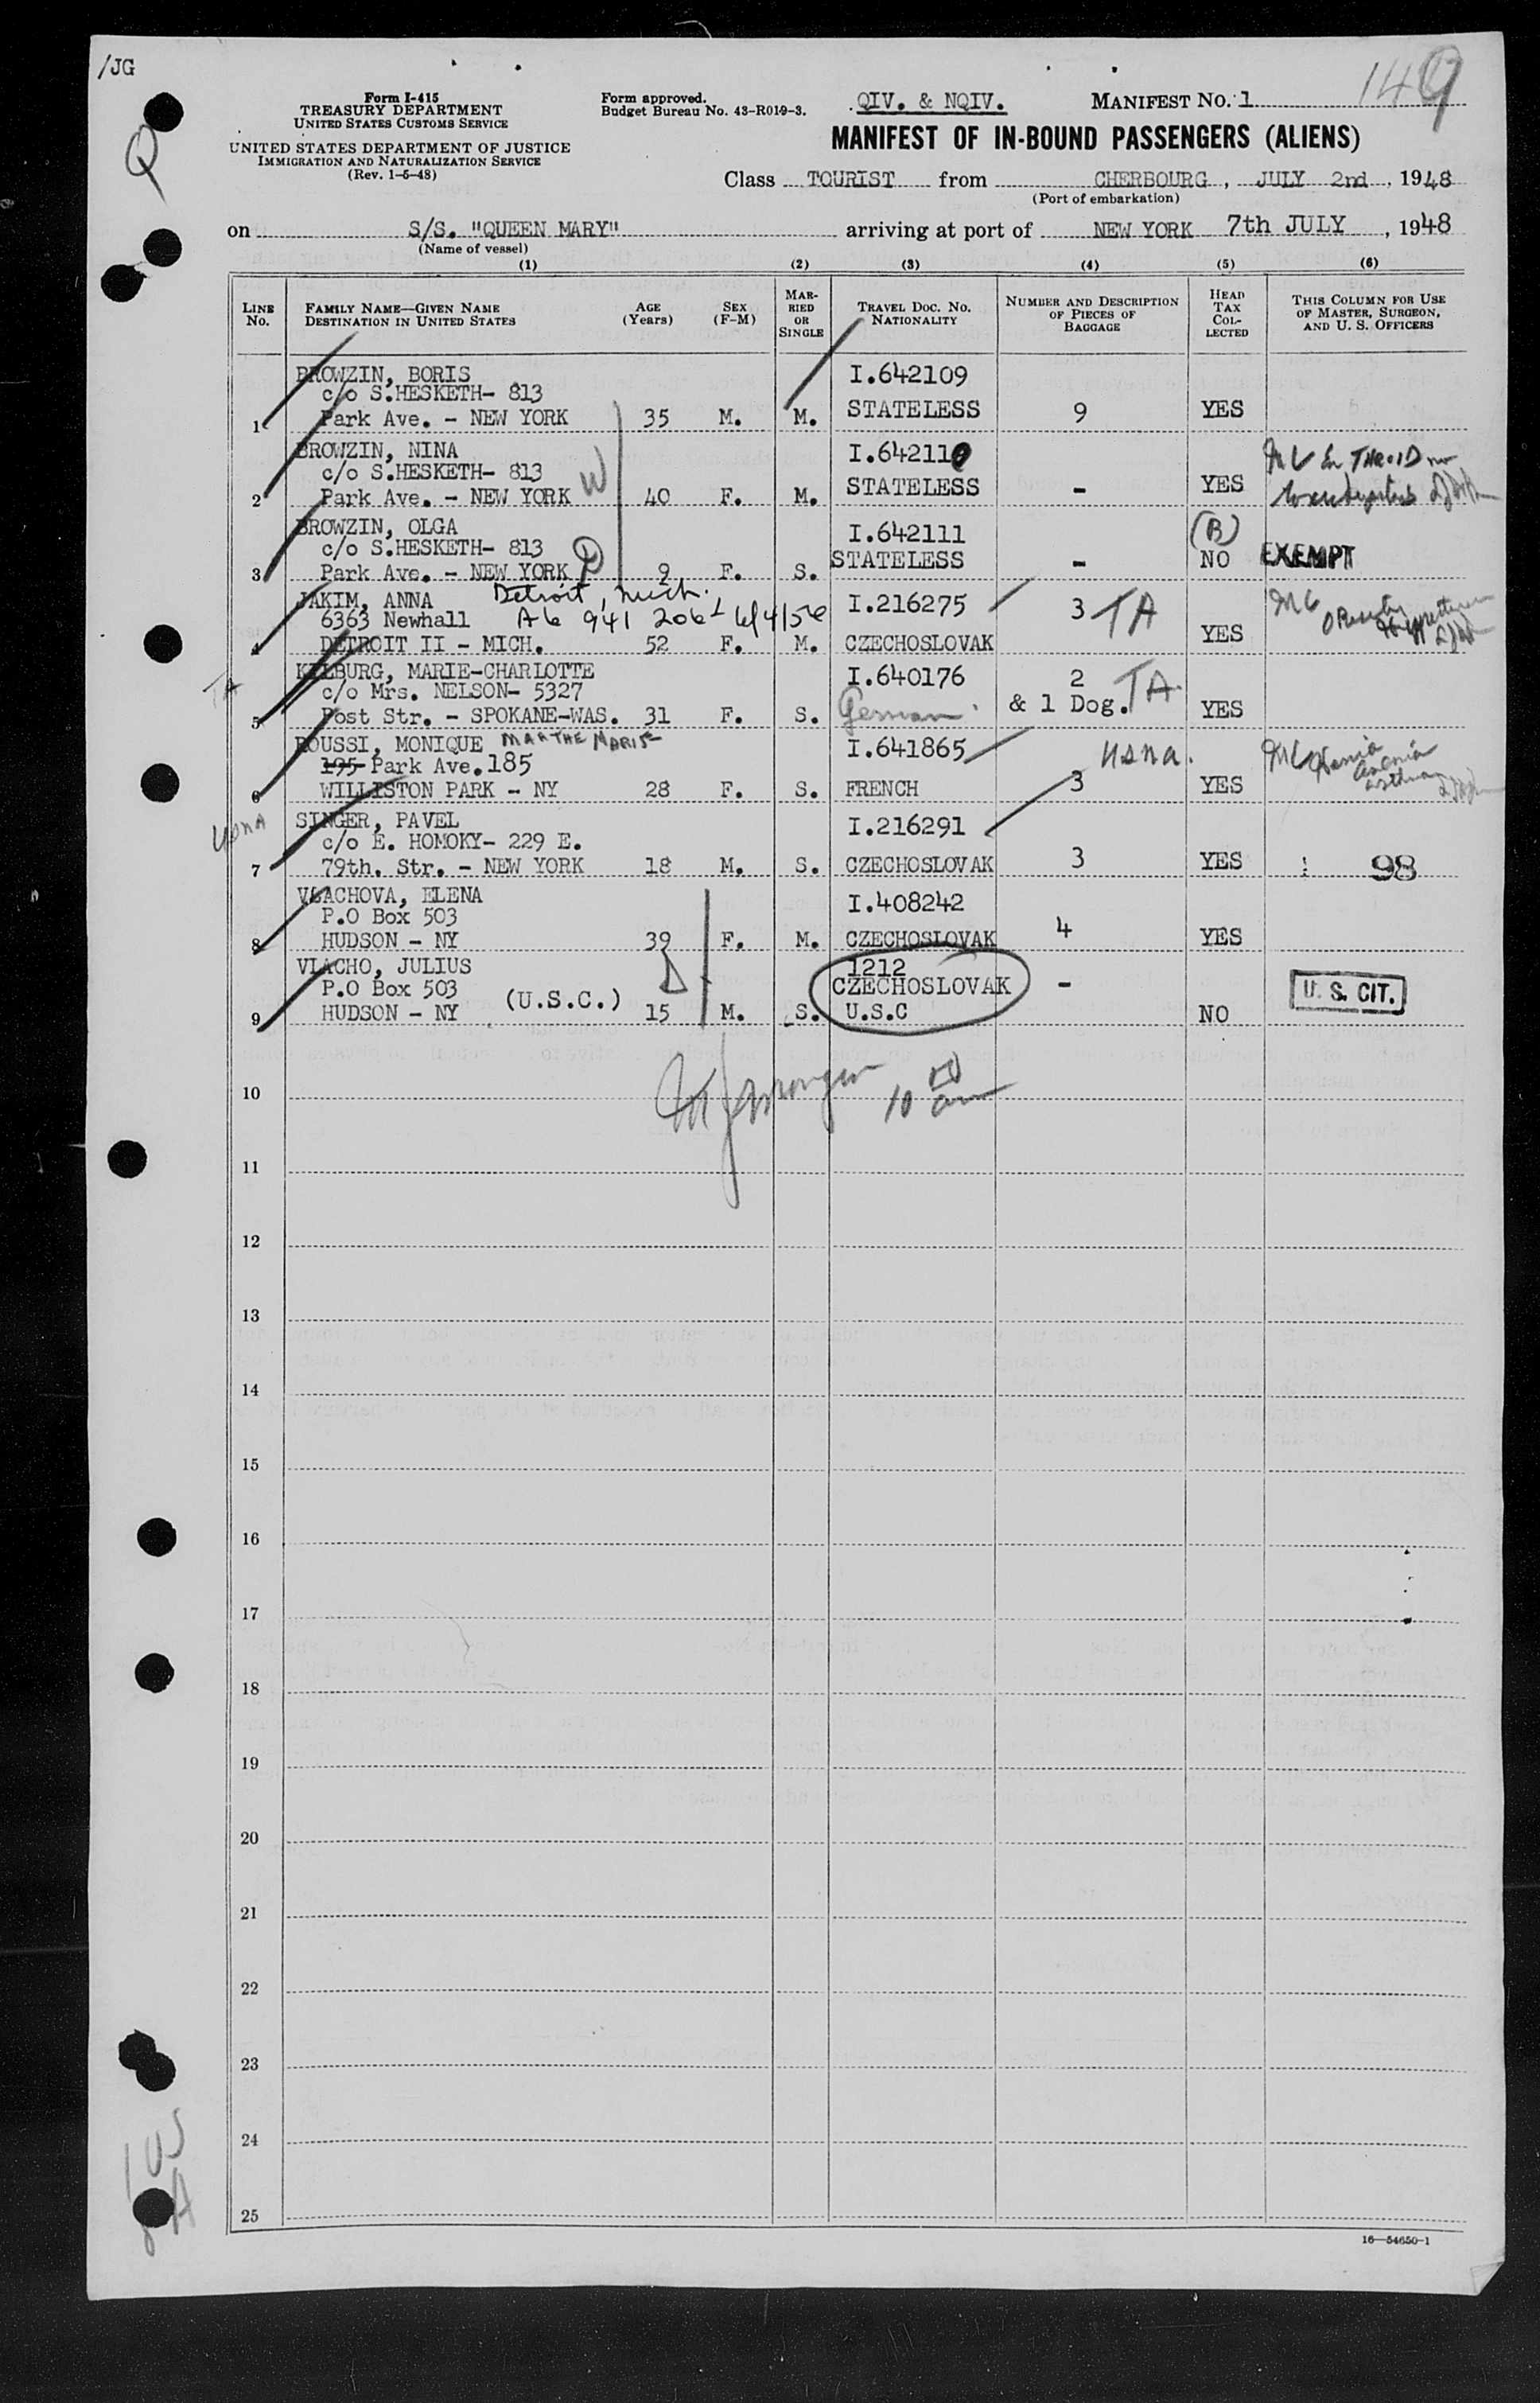 /JG
Form I-415
TREASURY DEPARTMENT
UNITED STATES CUSTOMS SERVICE
UNITED STATES DEPARTMENT OF JUSTICE
IMMIGRATION AND NATURALIZATION SERVICE
(Rev. 1-5-48)
Form approved.
Budget Bureau No. 43-R019-3.
QIV. & NQIV.
MANIFEST NO. 1
149
Q
MANIFEST OF IN-BOUND PASSENGERS (ALIENS)
Class TOURIST from CHERBOURG, JULY 2nd, 1948
(Port of embarkation)
on S/S. "QUEEN MARY" arriving at port of NEW YORK 7th JULY, 1948
(Name of vessel)
(1) (2) (3) (4) (5) (6)
LINE No.
FAMILY NAME—GIVEN NAME
DESTINATION IN UNITED STATES
AGE (Years)
SEX (F-M)
MARRIED OR SINGLE
TRAVEL DOC. NO.
NATIONALITY
NUMBER AND DESCRIPTION OF PIECES OF BAGGAGE
HEAD TAX COLLECTED
THIS COLUMN FOR USE OF MASTER, SURGEON, AND U. S. OFFICERS
BROWZIN, BORIS I.642109
c/o S.HESKETH- 813
1 Park Ave. - NEW YORK 35 M. M. STATELESS 9 YES
BROWZIN, NINA I.642110
c/o S.HESKETH- 813 W
2 Park Ave. - NEW YORK 40 F. M. STATELESS - YES
BROWZIN, OLGA I.642111 (B)
c/o S.HESKETH- 813 D
3 Park Ave. - NEW YORK 9 F. S. STATELESS - NO EXEMPT
JAKIM, ANNA Detroit, Mich. I.216275 3 TA
6363 Newhall A6 941 206 6/4/56
4 DETROIT II - MICH. 52 F. M. CZECHOSLOVAK YES
KILBURG, MARIE-CHARLOTTE I.640176 2
TA c/o Mrs. NELSON- 5327 & 1 Dog. TA
5 Post Str. - SPOKANE-WAS. 31 F. S. German YES
ROUSSI, MONIQUE MARTHE MARIE I.641865 usna.
195 Park Ave. 185
6 WILLISTON PARK - NY 28 F. S. FRENCH 3 YES
usna SINGER, PAVEL I.216291
c/o E. HOMOKY- 229 E.
7 79th. Str. - NEW YORK 18 M. S. CZECHOSLOVAK 3 YES 98
VLACHOVA, ELENA I.408242
P.O Box 503
8 HUDSON - NY 39 F. M. CZECHOSLOVAK 4 YES
VLACHO, JULIUS 1212
P.O Box 503 (U.S.C.) CZECHOSLOVAK - U. S. CIT.
9 HUDSON - NY 15 M. S. U.S.C NO
10 10 am
11
12
13
14
15
16
17
18
19
20
21
22
23
24
25
16—54650-1